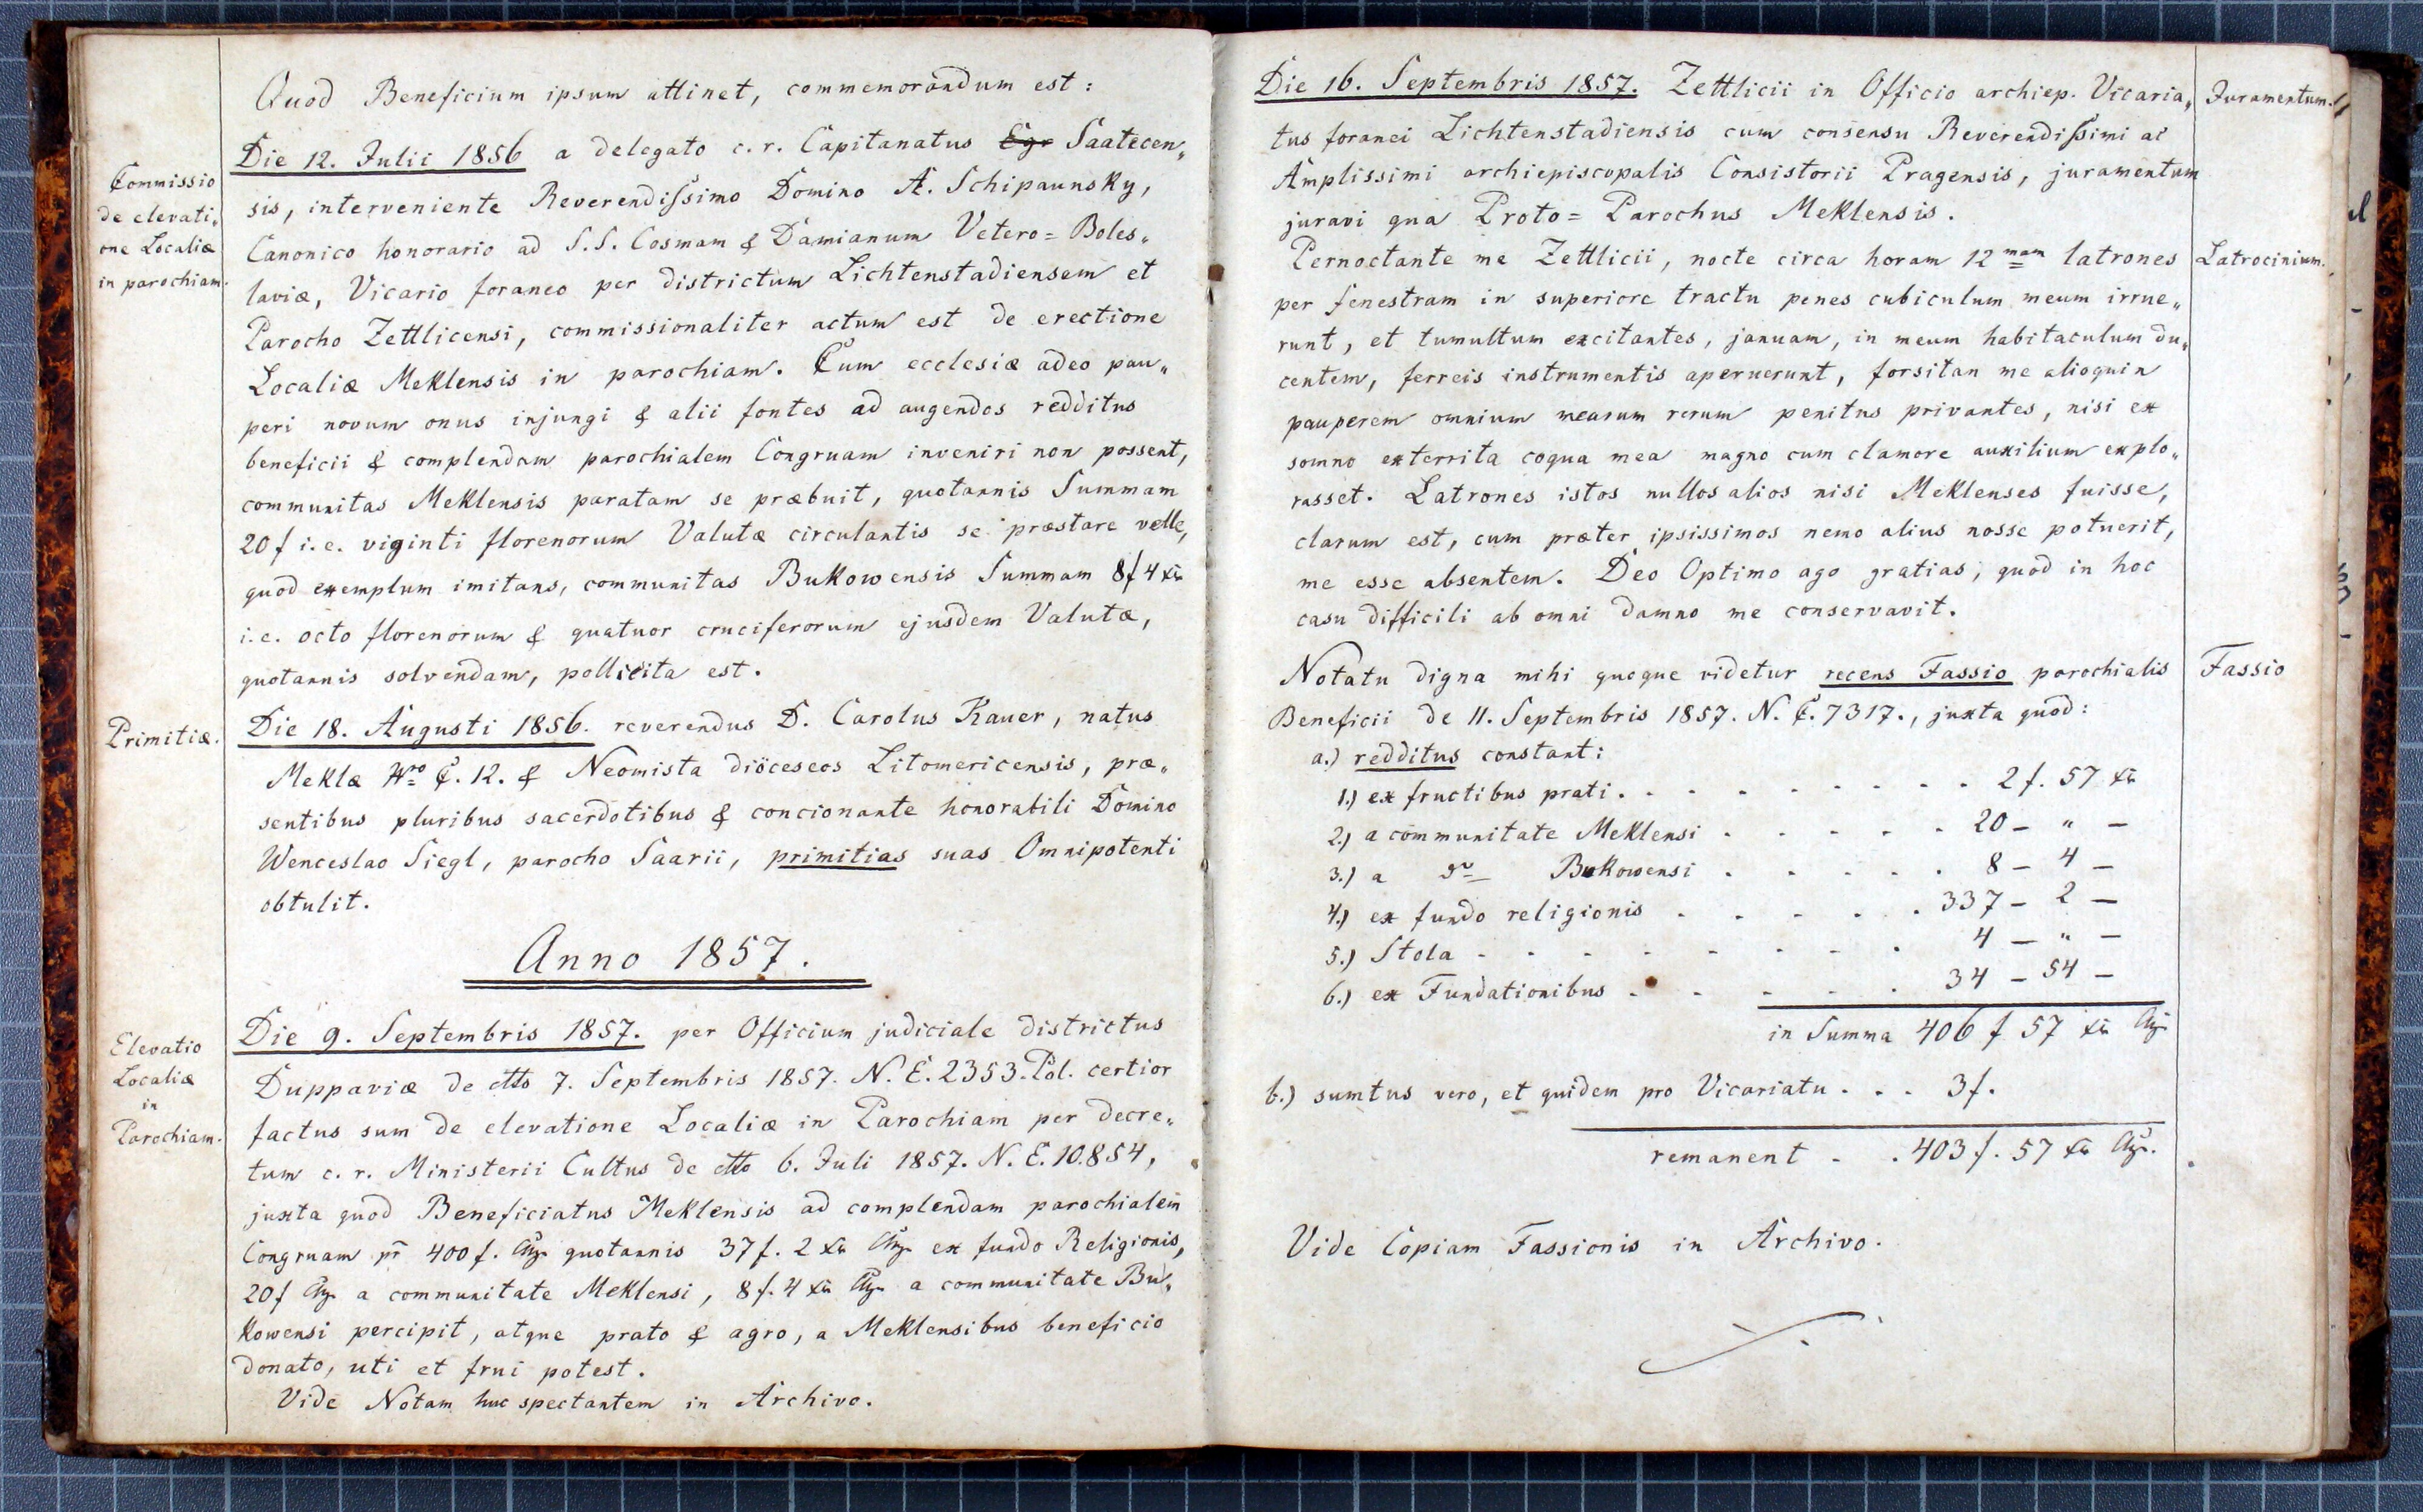 Quod Beneficium ipsum attinet, commemorandum est:
Commissio
de elevati„
one Localiæ
in parochiam.
Die 12. Julii 1856 a delegato c. r. Capitanatus Egr Saatecen„
sis, interveniente Reverendissimo Domino A. Schipaunsky,
Canonico honorario ad S.S. Cosmam & Damianum Vetero=Boles„
laviæ, Vicario foraneo per districtum Lichtenstadiensem et
Parocho Zettlicensi, commissionaliter actum est de erectione
Localiæ Meklensis in parochiam. Cum ecclesiæ adeo pau„
peri novum onus injungi & alii fontes ad augendos redditus
beneficii & complendam parochialem Congruam inveniri non possent,
communitas Meklensis paratam se præbuit, quotannis Summam
20 f i. e. viginti florenorum Valutæ circulantis se præstare velle,
quod exemplum imitans, communitas Bukowensis Summam 8 f 4 xr
i. e. octo florenorum & quatuor cruciferorum ejusdem Valutæ,
quotannis solvendam, pollicita est.
Primitiæ.
Die 18. Augusti 1856. reverendus D. Carolus Kauer, natus
Meklæ Nro C. 12. & Neomista diöceseos Litomericensis, præ„
sentibus pluribus sacerdotibus & concionante honorabili Domino
Wenceslao Siegl, parocho Saarii, primitias suas Omnipotenti
obtulit.
Anno 1857.
Elevatio
Localiæ
in
Parochiam.
Die 9. Septembris 1857. per Officium judiciale districtus
Duppaviæ de dtto 7. Septembris 1857. N. E. 2353. Pol. certior
factus sum de elevatione Localiæ in Parochiam per decre„
tum c. r. Ministerii Cultus de dtto 6. Juli 1857. N. E. 10.854,
juxta quod Beneficiatus Meklensis ad complendam parochialem
Congruam pr 400 f. quotannis 37 f. 2 xr ex fundo Religionis,
20 f a communitate Meklensi, 8 f. 4 xr a communitate Bu„
kowensi percipit, atque prato & agro, a Meklensibus beneficio
donato, uti et frui potest.
Vide Notam huc spectantem in Archivo.
Die 16. Septembris 1857. Zettlicii in Officio archiep. Vicaria„
Juramentum.
tus foranei Lichtenstadiensis cum consensu Reverendissimi ac
Amplissimi archiepiscopalis Consistorii Pragensis, juramentum
juravi qua Proto=Parochus Meklensis.
Pernoctante me Zettlicii, nocte circa horam 12mam latrones
Latrocinium.
per fenestram in superiore tractu penes cubiculum meum irrue„
runt, et tumultum excitantes, januam, in meum habitaculum du„
centem, ferreis instrumentis aperuerunt, forsitan me alioquin
pauperem omnium mearum rerum penitus privantes, nisi ex
somno exterrita coqua mea magno cum clamore auxilium explo„
rasset. Latrones istos nullos alios nisi Meklenses fuisse,
clarum est, cum præter ipsissimos nemo alius nosse potuerit,
me esse absentem. Deo Optimo ago gratias, quod in hoc
casu difficili ab omni damno me conservavit.
Notatu digna mihi quoque videtur recens Fassio parochialis
Fassio
Beneficii de 11. Septembris 1857. N. E. 7317., juxta quod:
a.) redditus constant:
1.) ex fructibus prati . . . . . . . . 2 f. 57 xr
2.) a communitate Meklensi . . . . . 20 – „ –
3.) a do Bukowensi . . . . . 8 – 4 –
4.) ex fundo religionis . . . . . 337 – 2 –
5.) Stola . . . . . . . . 4 – „ –
6.) ex Fundationibus . . . . . 34 – 54 –
in Summa 406 f 57 xr
b.) sumtus vero, et quidem pro Vicariatu . . . 3 f.
remanent . . 403 f. 57 xr
Vide Copiam Fassionis in Archivo.